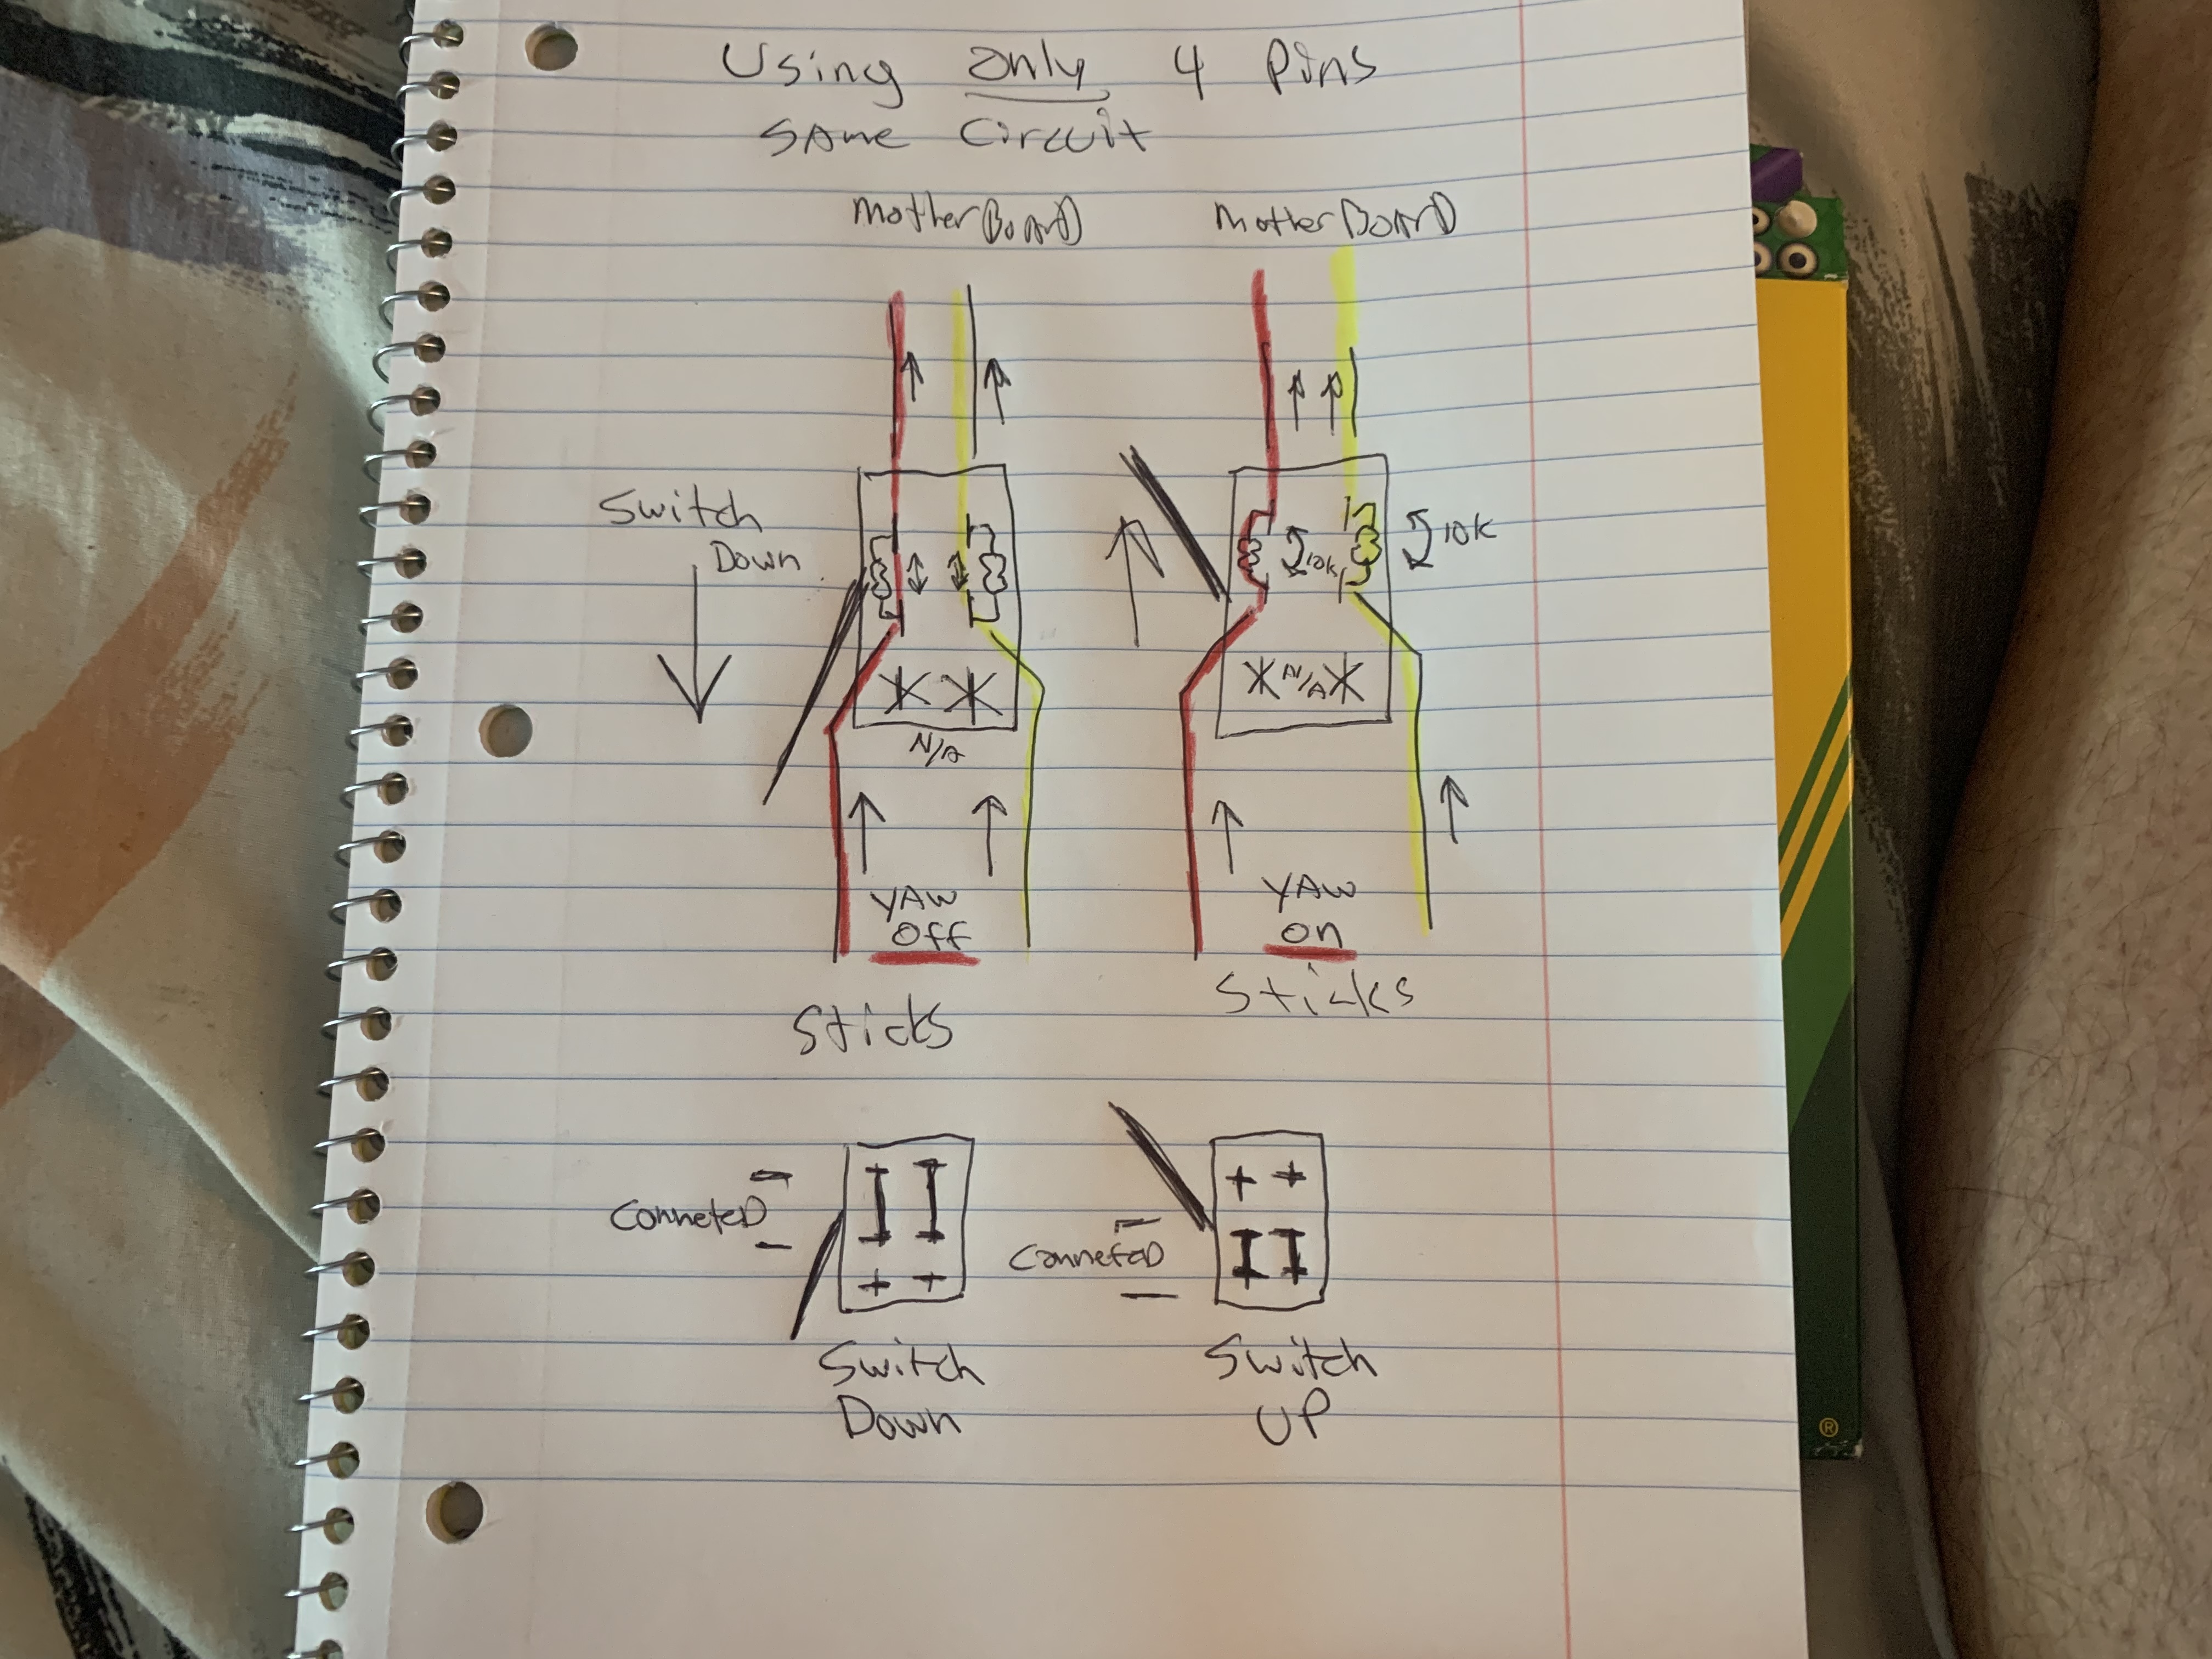 Using Only 4 Pins
SAme Circuit
MotherBoarD
MotherBoarD
Switch
Down
10k
10k
N/A
N/A
YAW
Off
YAW
on
Sticks
Sticks
ConneteD
ConneteD
Switch
Down
Switch
UP
®